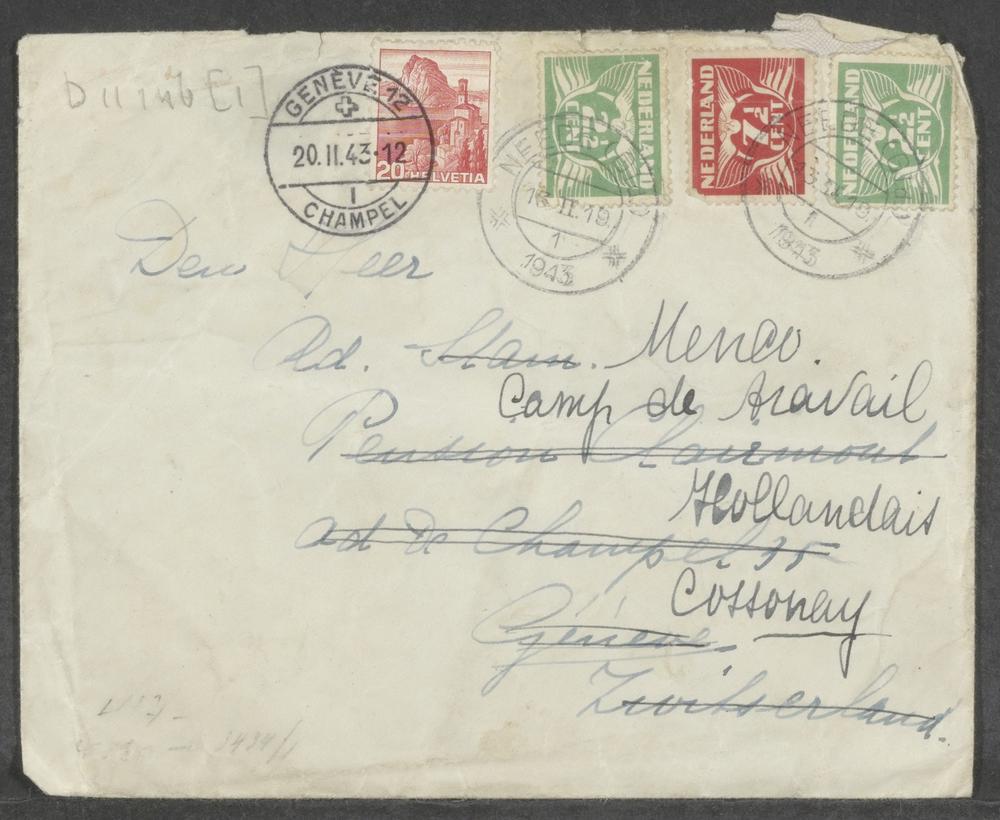 D 11146 [1]
GENÈVE 12
20.II.43-12
1
CHAMPEL
20 HELVETIA
2½ CENT
NEDERLAND
7½ CENT
NEDERLAND
2½ CENT
NEDERLAND
NEEDE
II.19
1
1943
NEEDE
II.19
1
1943
Den Heer
Ad. Stam. Menco.
Camp de travail
Pension Clairmont
Hollandais
ad de Champel 35
Cossonay
Genève
Zwitserland.
3434/1